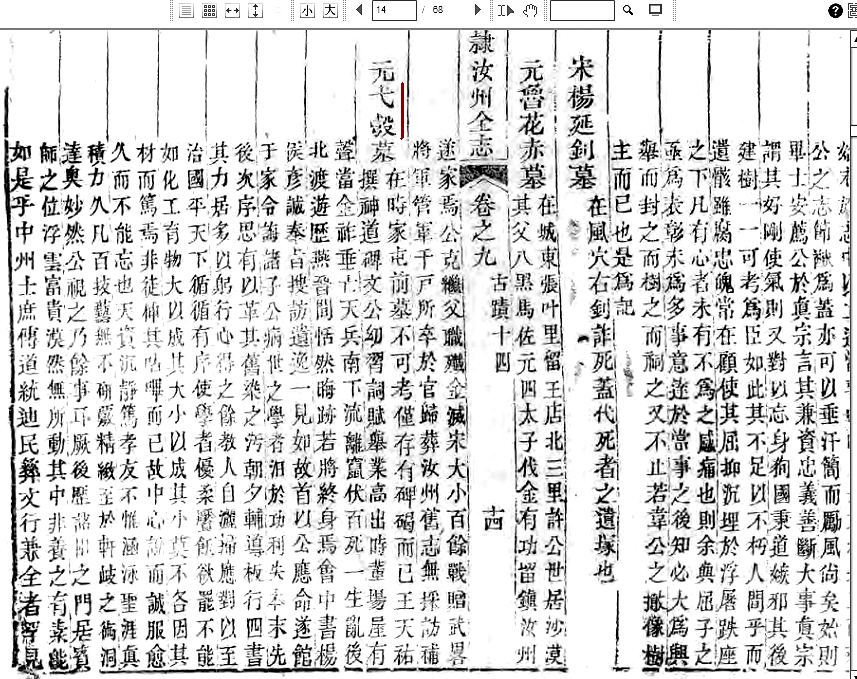 小 大 14 / 68
公之志節 爲蓋亦可以垂汗簡而勵風尚矣始則
畢士安薦公於眞宗言其兼資忠義善斷大事眞宗
謂其好剛使氣則又對以忘身狥國秉道嫉邪其後
建樹一一可考爲臣如此其不足以不朽人間乎而
遺骸雖腐忠魄常在顧使其屈抑沉埋於浮屠趺座
之下凡有心者未有不爲之感痛也則余與屈子之
亟爲表彰未爲多事意逹於當事之後知必大爲興
舉而封之而樹之而祠之又不止若韋公之撤像樹
主而已也是爲記
宋楊延釗墓 在風穴右釗詐死蓋代死者之遺塚也
元魯花赤墓 在城東張叶里留王店北三里許公世居沙漠
其父八黑馬佐元四太子伐金有功留鎮汝州
隸汝州全志 卷之九 古蹟十四 十四
遂家焉公克纘父職殲金滅宋大小百餘戰贈武畧
將軍管軍千戶所卒於官歸葬汝州舊志無採訪補
元弋瑴墓 在時家屯前墓不可考僅存有碑碣而已王天祐
撰神道碑文公幼習詞賦舉業高出時輩場屋有
聲當金祚垂亡天兵南下流離竄伏百死一生亂後
北渡遊歷燕晉間恬然晦跡若將終身焉會中書楊
侯彥誠奉旨搜訪遺逸一見如故首以公應命遂館
于家令誨諸子公病世之學者汨於功利失本末先
後次序思有以革其舊染之污朝夕輔導板行四書
其力居多以躬行心得之餘教人自灑掃應對以至
治國平天下循循有序使學者優柔饜飫欲罷不能
如化工育物大以成其大小以成其小莫不各因其
材而篤焉非徒伸其呫嗶而已故中心悅而誠服愈
久而不能忘也天資沉靜篤孝友不惟涵泳聖涯真
積力久凡百技藝無不硏覈精緻至於軒歧之術洞
逹奥妙然公視之乃餘事耳厥後歷諸 之門居賓
師之位浮雲富貴漠然無所動其中非養之有素能
如是乎中州士庶傳道統迪民彝文行兼全者罕見